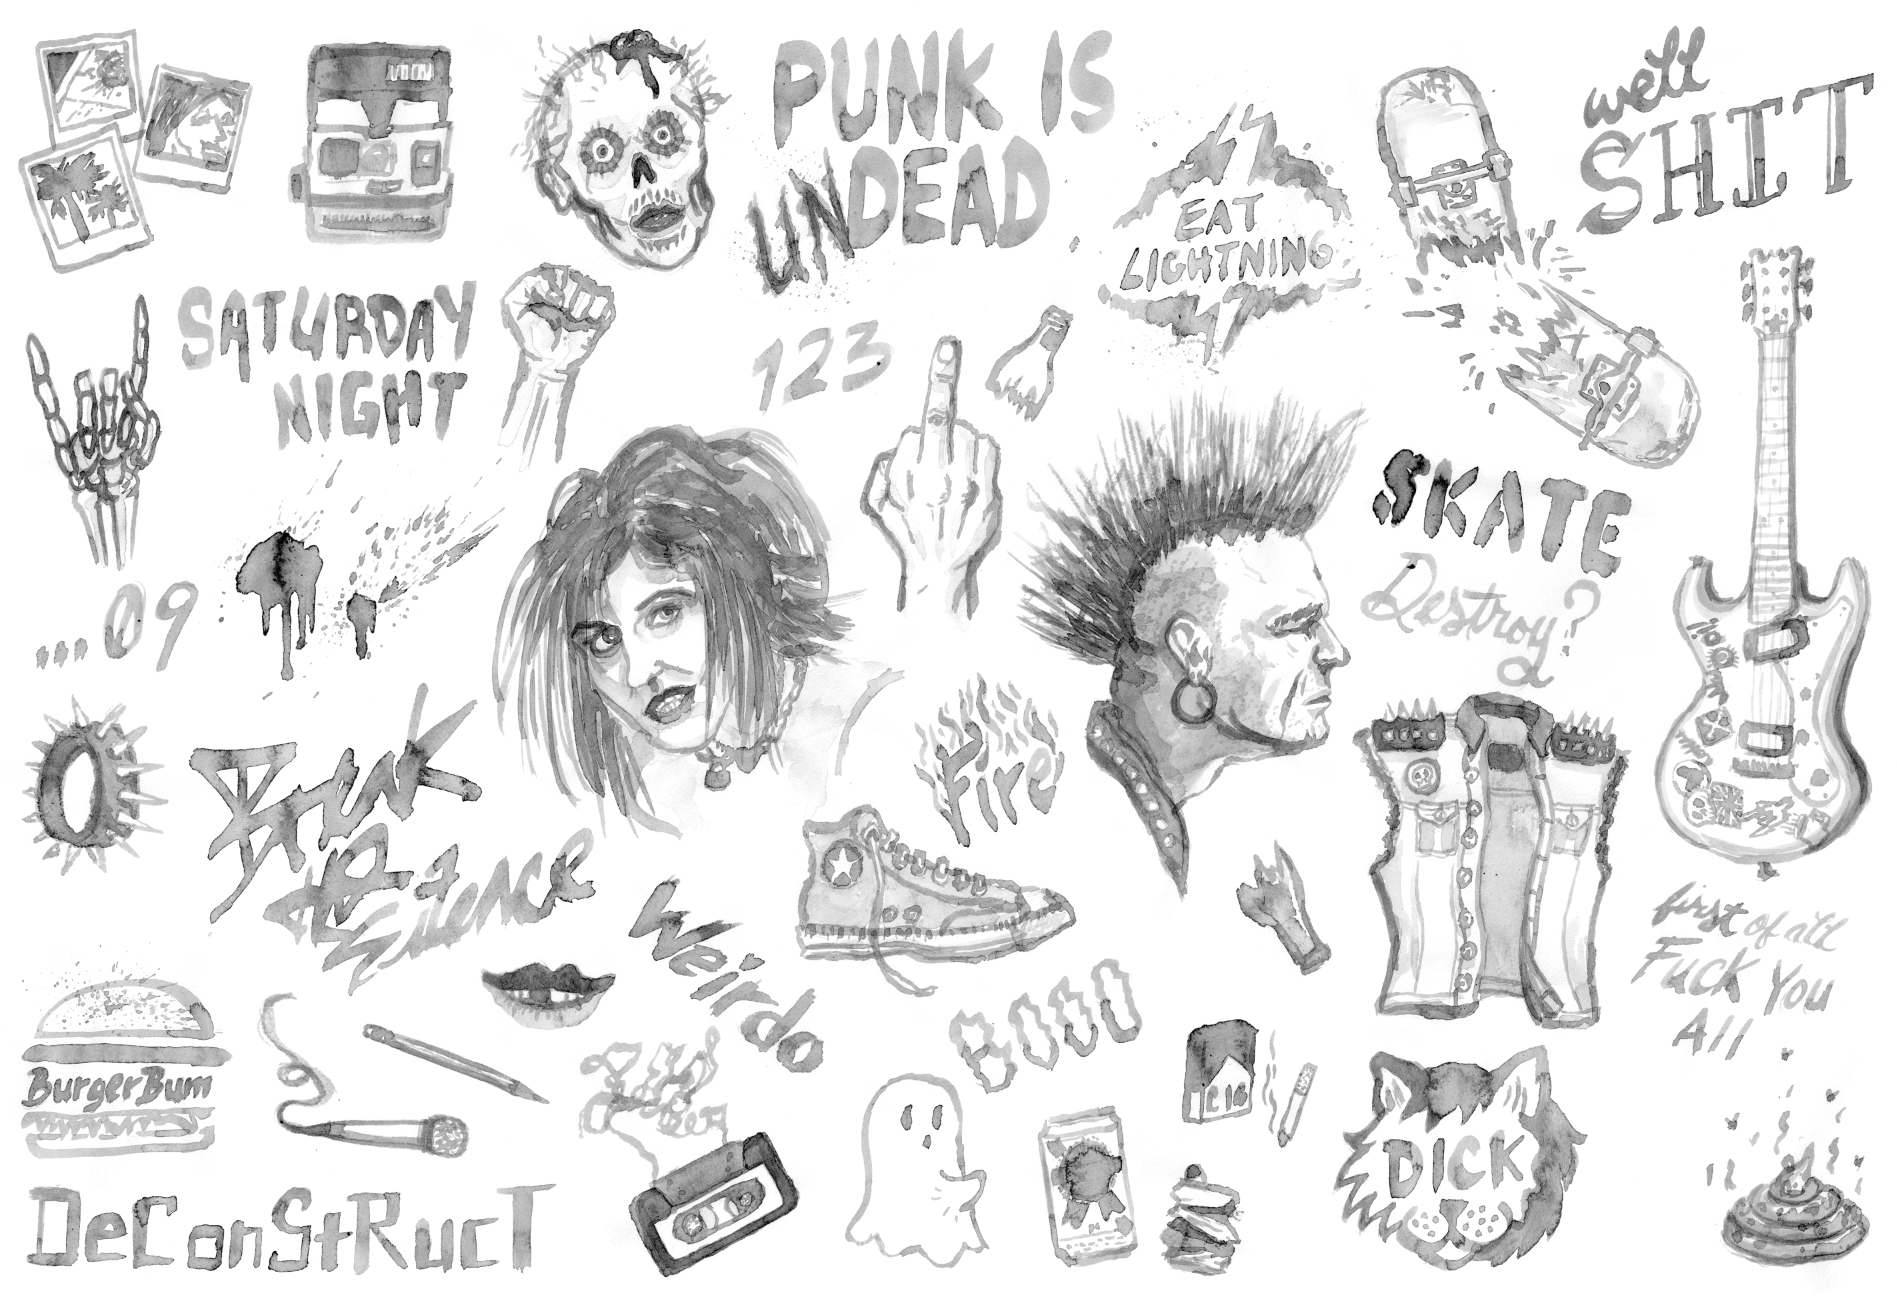 PUNK IS
UNDEAD
well
SHIT
EAT
LIGHTNING
SATURDAY
NIGHT
123
SKATE
Destroy?
...09
Break
The
Silence
Fire
Weirdo
first of all
Fuck You
All
BOOO
BurgerBum
DICK
DeConStRucT